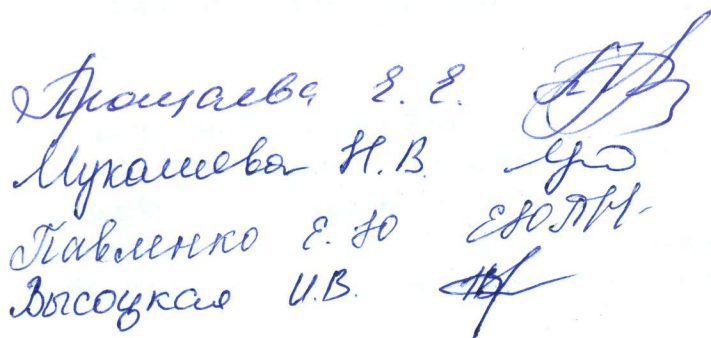 Прощаева Е. Е.
Мукашева Н. В.
Павленко Е. Ю
Высоцкая И. В.